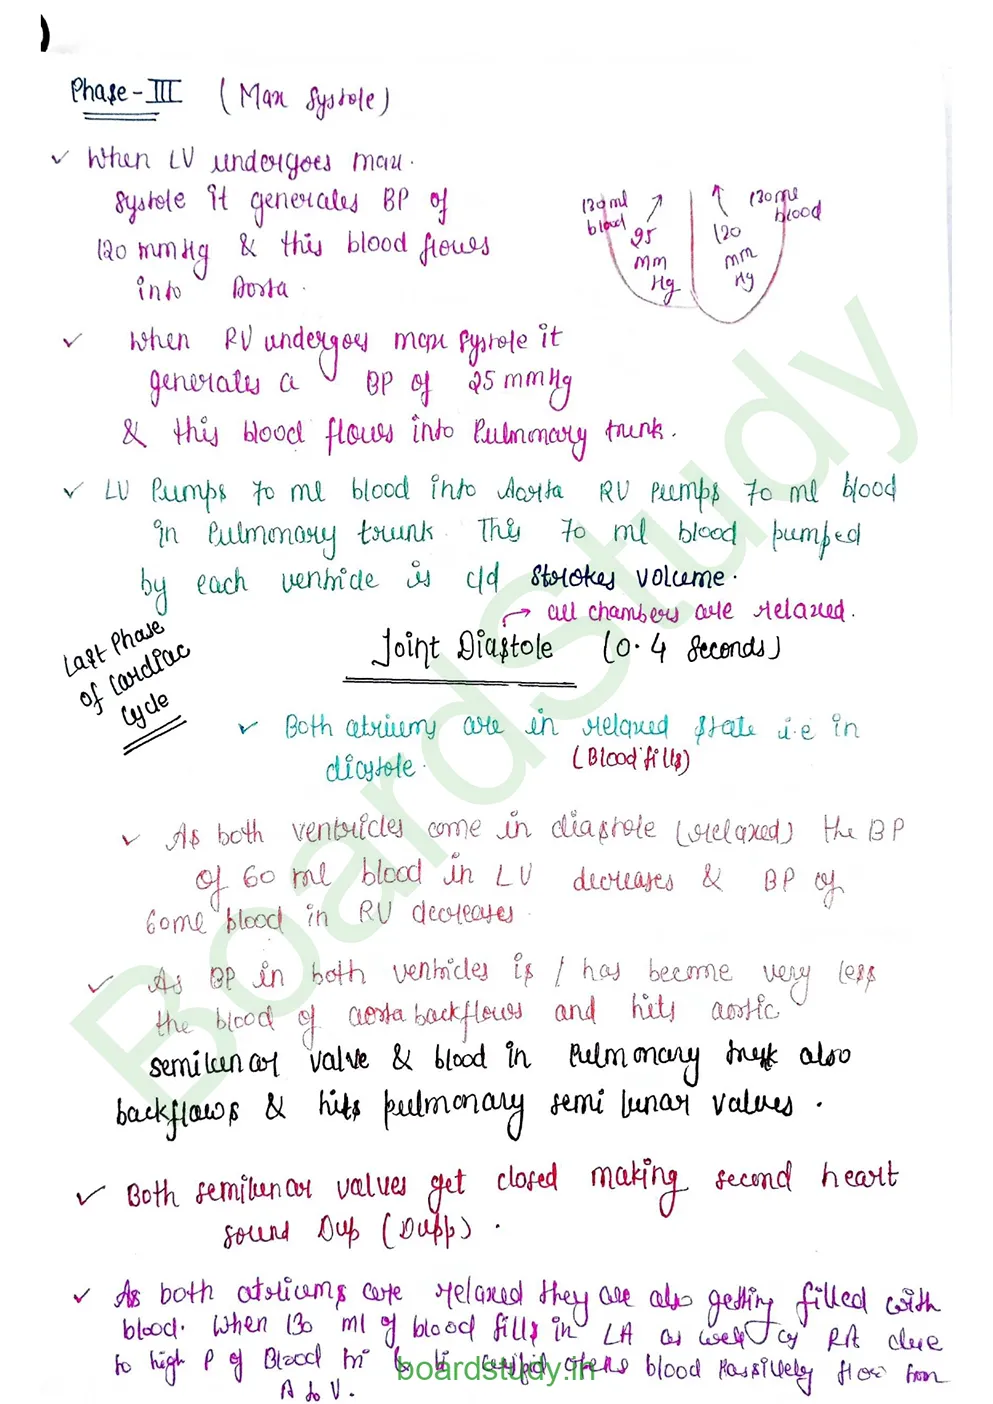 )
Phase-III (Max systole)
✓ When LV undergoes max.
systole it generates BP of
120 mmHg & this blood flows
into Aorta.
130ml
blood
25
mm
Hg
120
mm
Hg
130ml
blood
✓ When RV undergoes max systole it
generates a BP of 25 mmHg
& this blood flows into Pulmonary trunk.
✓ LV Pumps 70 ml blood into Aorta RV Pumps 70 ml blood
in Pulmonary trunk. This 70 ml blood pumped
by each ventricle is c/d strokes volume.
→ all chambers are relaxed.
Last Phase
of Cardiac
Cycle
Joint Diastole (0.4 seconds)
✓ Both atriums are in relaxed state i.e in
diastole. (Blood fills)
✓ As both ventricles come in diastole (relaxed) the BP
of 60 ml blood in LV decreases & BP of
60ml blood in RV decreases.
✓ As BP in both ventricles is / has become very less
the blood of aorta backflows and hits aortic
semilunar valve & blood in Pulmonary trunk also
backflows & hits pulmonary semi lunar valves.
✓ Both semilunar valves get closed making second heart
sound Dup (Dupp).
✓ As both atriums are relaxed they are also getting filled with
blood. When 130 ml of blood fills in LA as well as RA due
to high P of Blood opens blood Passively flow from
A to V.
BoardStudy
boardstudy.in